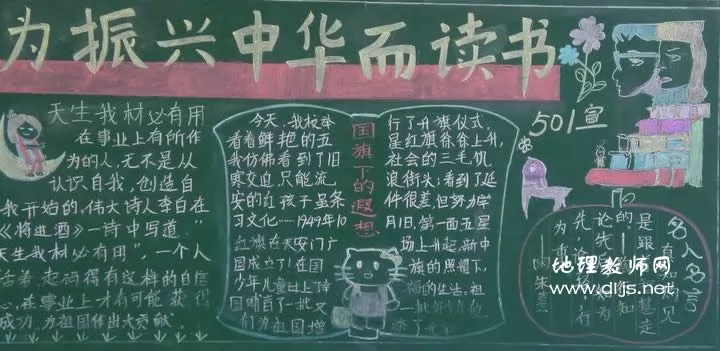 为振兴中华而读书
天生我材必有用
在事业上有所作
为的人,无不是从
认识自我,创造自
我开始的。伟大诗人李白在
《将进酒》一诗中写道:"
天生我材必有用",一个人
活着,起码得有这样的自信
心,在事业上才有可能获得
成功,为祖国作出大贡献。
国旗下的遐想
今天,我校举行了升旗仪式,
看着鲜艳的五星红旗徐徐上升,
我仿佛看到了旧社会的三毛,饥
寒交迫,只能流浪街头;看到了延
安的红孩子,虽条件很差,但努力学
习文化……1949年10月1日,第一面五星
红旗在天安门广场上升起,新中
国成立了!在国旗的照耀下,
少年儿童过上幸福的生活,祖
国哺育了一批又一批
们为祖国增添了
501宣
名人名言
是跟
走的。
论先后
知为
先
行
为重
朱熹
地理教师网
www.dljs.net